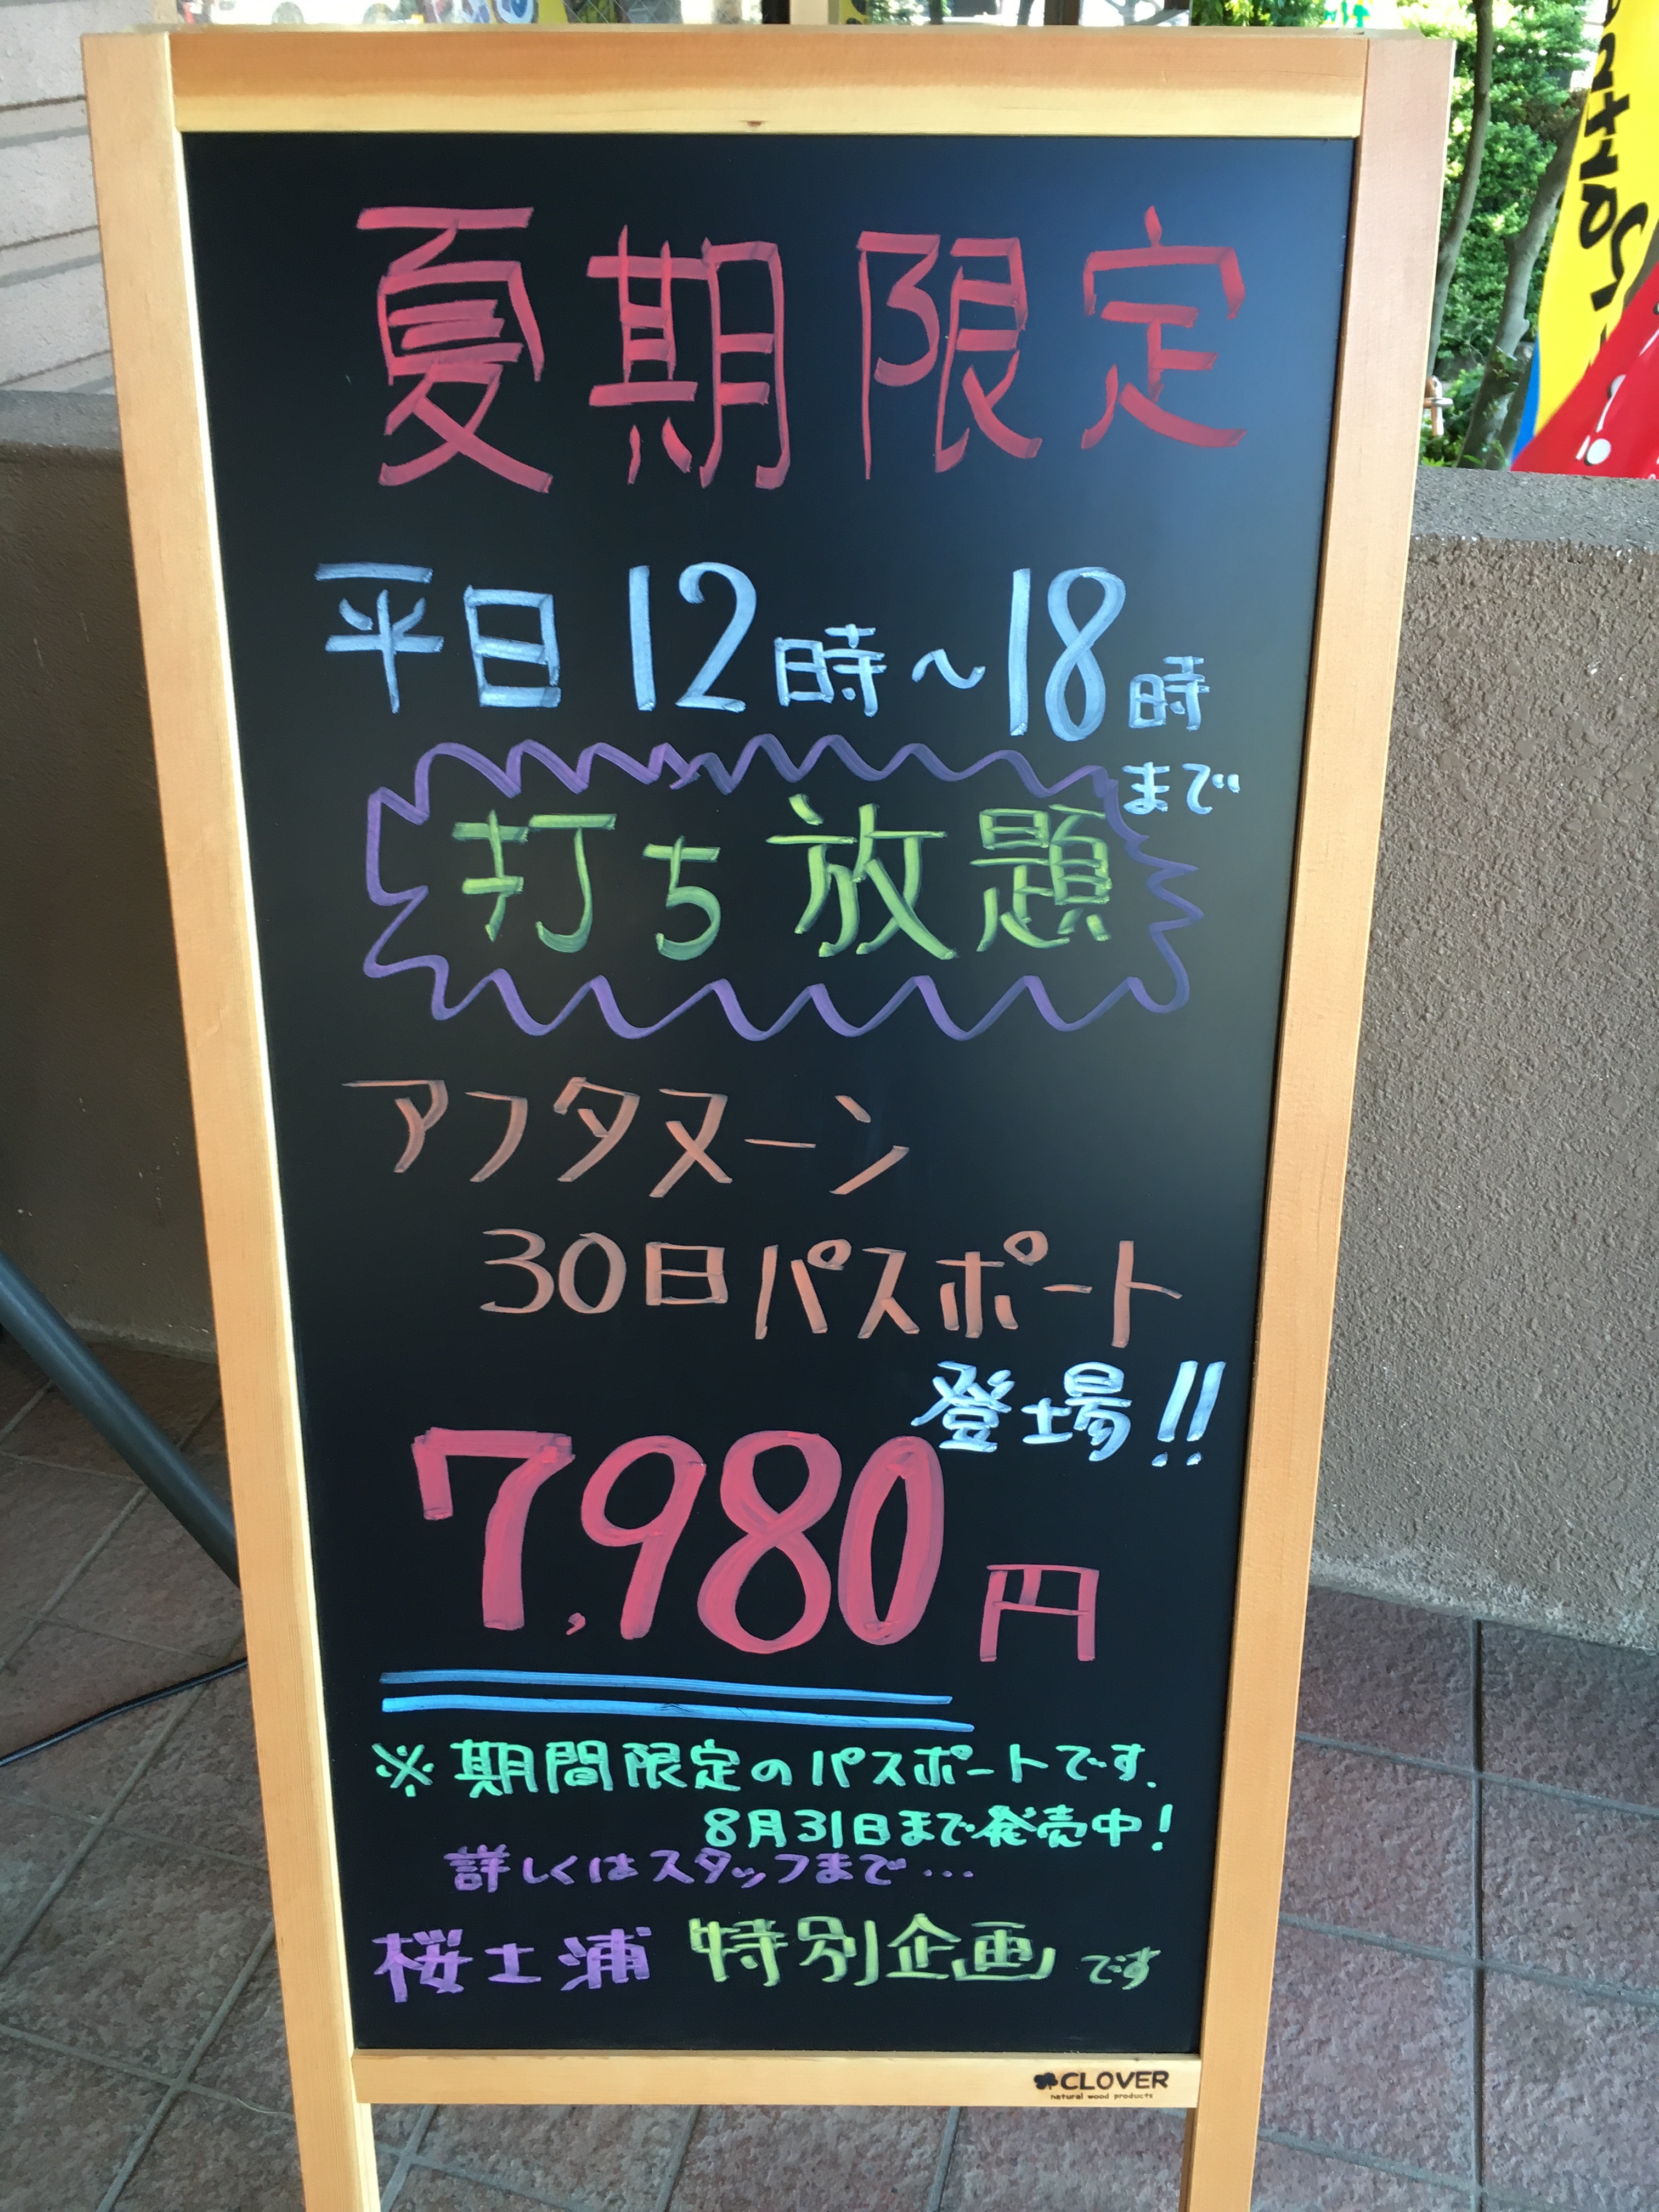 夏期限定
平日12時～18時
まで
打ち放題
アフタヌーン
30日パスポート
登場!!
7,980円
※期間限定のパスポートです.
8月31日まで発売中!
詳しくはスタッフまで…
桜土浦 特別企画です
CLOVER
natural wood products